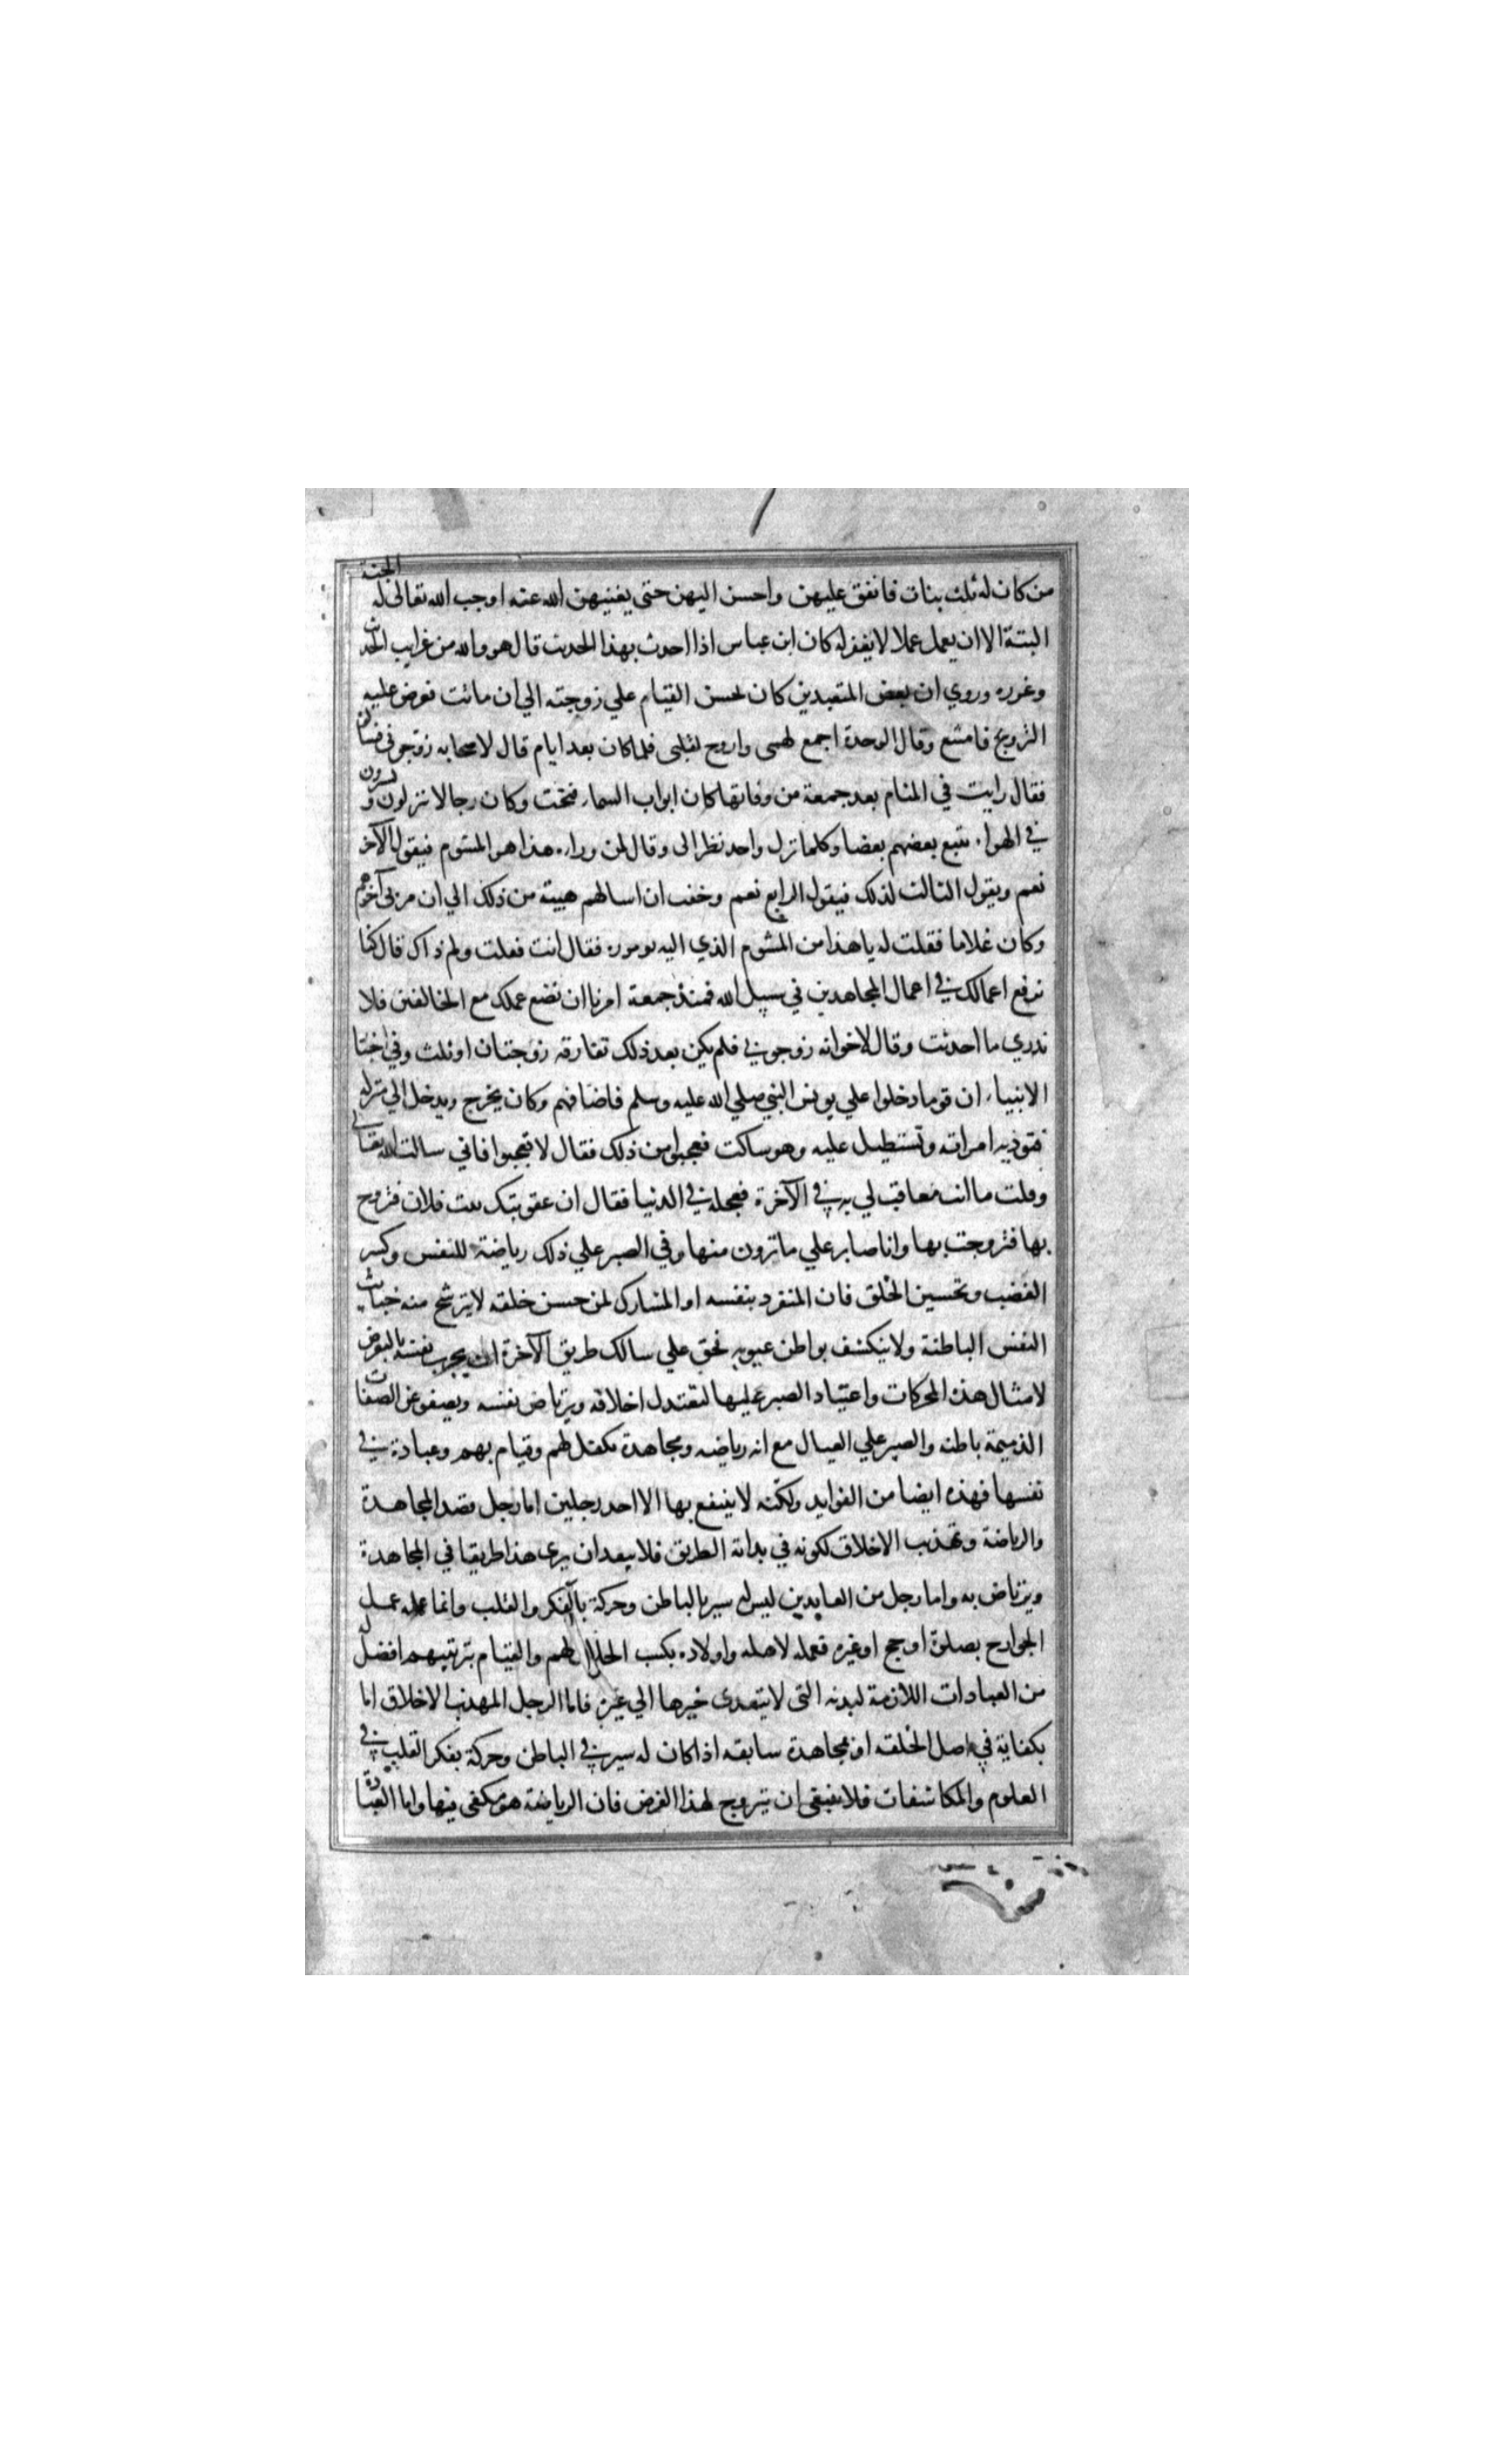 من كان له ثلث بنات فانفق عليهن واحسن اليهن حتى يغنيهن الله عنه اوجب الله تعالى له الجنة
البتة الا ان يعمل عملا لا يغفر له كان ابن عباس اذا احدث بهذا الحديث قال هو والله من غرايب الحديث
وغرره وروي ان بعض المتعبدين كان لحسن القيام علي زوجته الي ان ماتت فعرض عليه
التزويج فامتنع وقال الوحدة اجمع لهمى واروح لقلبى فلما كان بعد ايام قال لاصحابه زوجونى
فقال رايت في المنام بعد جمعة من وفاتها كان ابواب السماء فتحت وكان رجالا ينزلون ويسيرون
في الهواء يتبع بعضهم بعضا وكلما نزل واحد نظر الى وقال لمن وراءه هذا هو المشوم فيقول الآخر
نعم ويقول الثالث لذلك فيقول الرابع نعم وخفت ان اسالهم هيبة من ذلك الي ان مر بى آخرهم
وكان غلاما فقلت له يا هذا من المشوم الذي اليه تومون فقال انت فقلت ولم ذاك قال كنا
نرفع اعمالك في اعمال المجاهدين في سبيل الله فمنذ جمعة امرنا ان نضع عملك مع الخالفين فلا
ندري ما احدثت وقال لاخوانه زوجوني فلم يكن بعد ذلك تفارقه زوجتان او ثلث وفي اخبا
الانبياء ان قوما دخلوا علي يونس النبي صلي الله عليه وسلم فاضافهم وكان يخرج ويدخل الي منزله
فتوذيه امراته وتستطيل عليه وهو ساكت فعجبوا من ذلك فقال لا تعجبوا فاني سالت الله تعالى
وقلت ما انت معاقب لي به في الآخرة فعجله في الدنيا فقال ان عقوبتك بنت فلان فتزوج
بها فتزوجت بها وانا صابر علي ما ترون منها وفي الصبر علي ذلك رياضة للنفس وكسر
الغضب وتحسين الخلق فان المنفرد بنفسه او المشارك لمن حسن خلقه لا يترشح منه خبايث
النفس الباطنة ولا ينكشف بواطن عيوبه فحق علي سالك طريق الآخرة ان يجرب نفسه بالتعرض
لامثال هذه المحركات واعتياد الصبر عليها لتعتدل اخلاقه ويرتاض نفسه ويصفو عن الصفات
الذميمة باطنه والصبر علي العيال مع انه رياضه ومجاهدة تكفل لهم وقيام بهم وعبادة في
نفسها فهذه ايضا من الفوايد ولكنه لا ينتفع بها الا احد رجلين اما رجل قصد المجاهدة
والرياضة وتهذيب الاخلاق لكونه في بداية الطريق فلا يبعد ان يرى هذا طريقا في المجاهدة
ويرتاض به واما رجل من العابدين ليس له سير بالباطن وحركة بالفكر والقلب وانما عمله عمل
الجوارح بصلوة او حج او غيره فعمله لاهله واولاده بكسب الحلال لهم والقيام بتربيتهم افضل
من العبادات اللازمة لبدنه التى لا يتعدى خيرها الي غيره فاما الرجل المهذب الاخلاق اما
بكفاية في اصل الخلقه او بمجاهدة سابقه اذا كان له سير في الباطن وحركة بفكر القلب في
العلوم والمكاشفات فلا ينبغى ان يتزوج لهذا الغرض فان الرياضة هو مكفى فيها واما العبادة